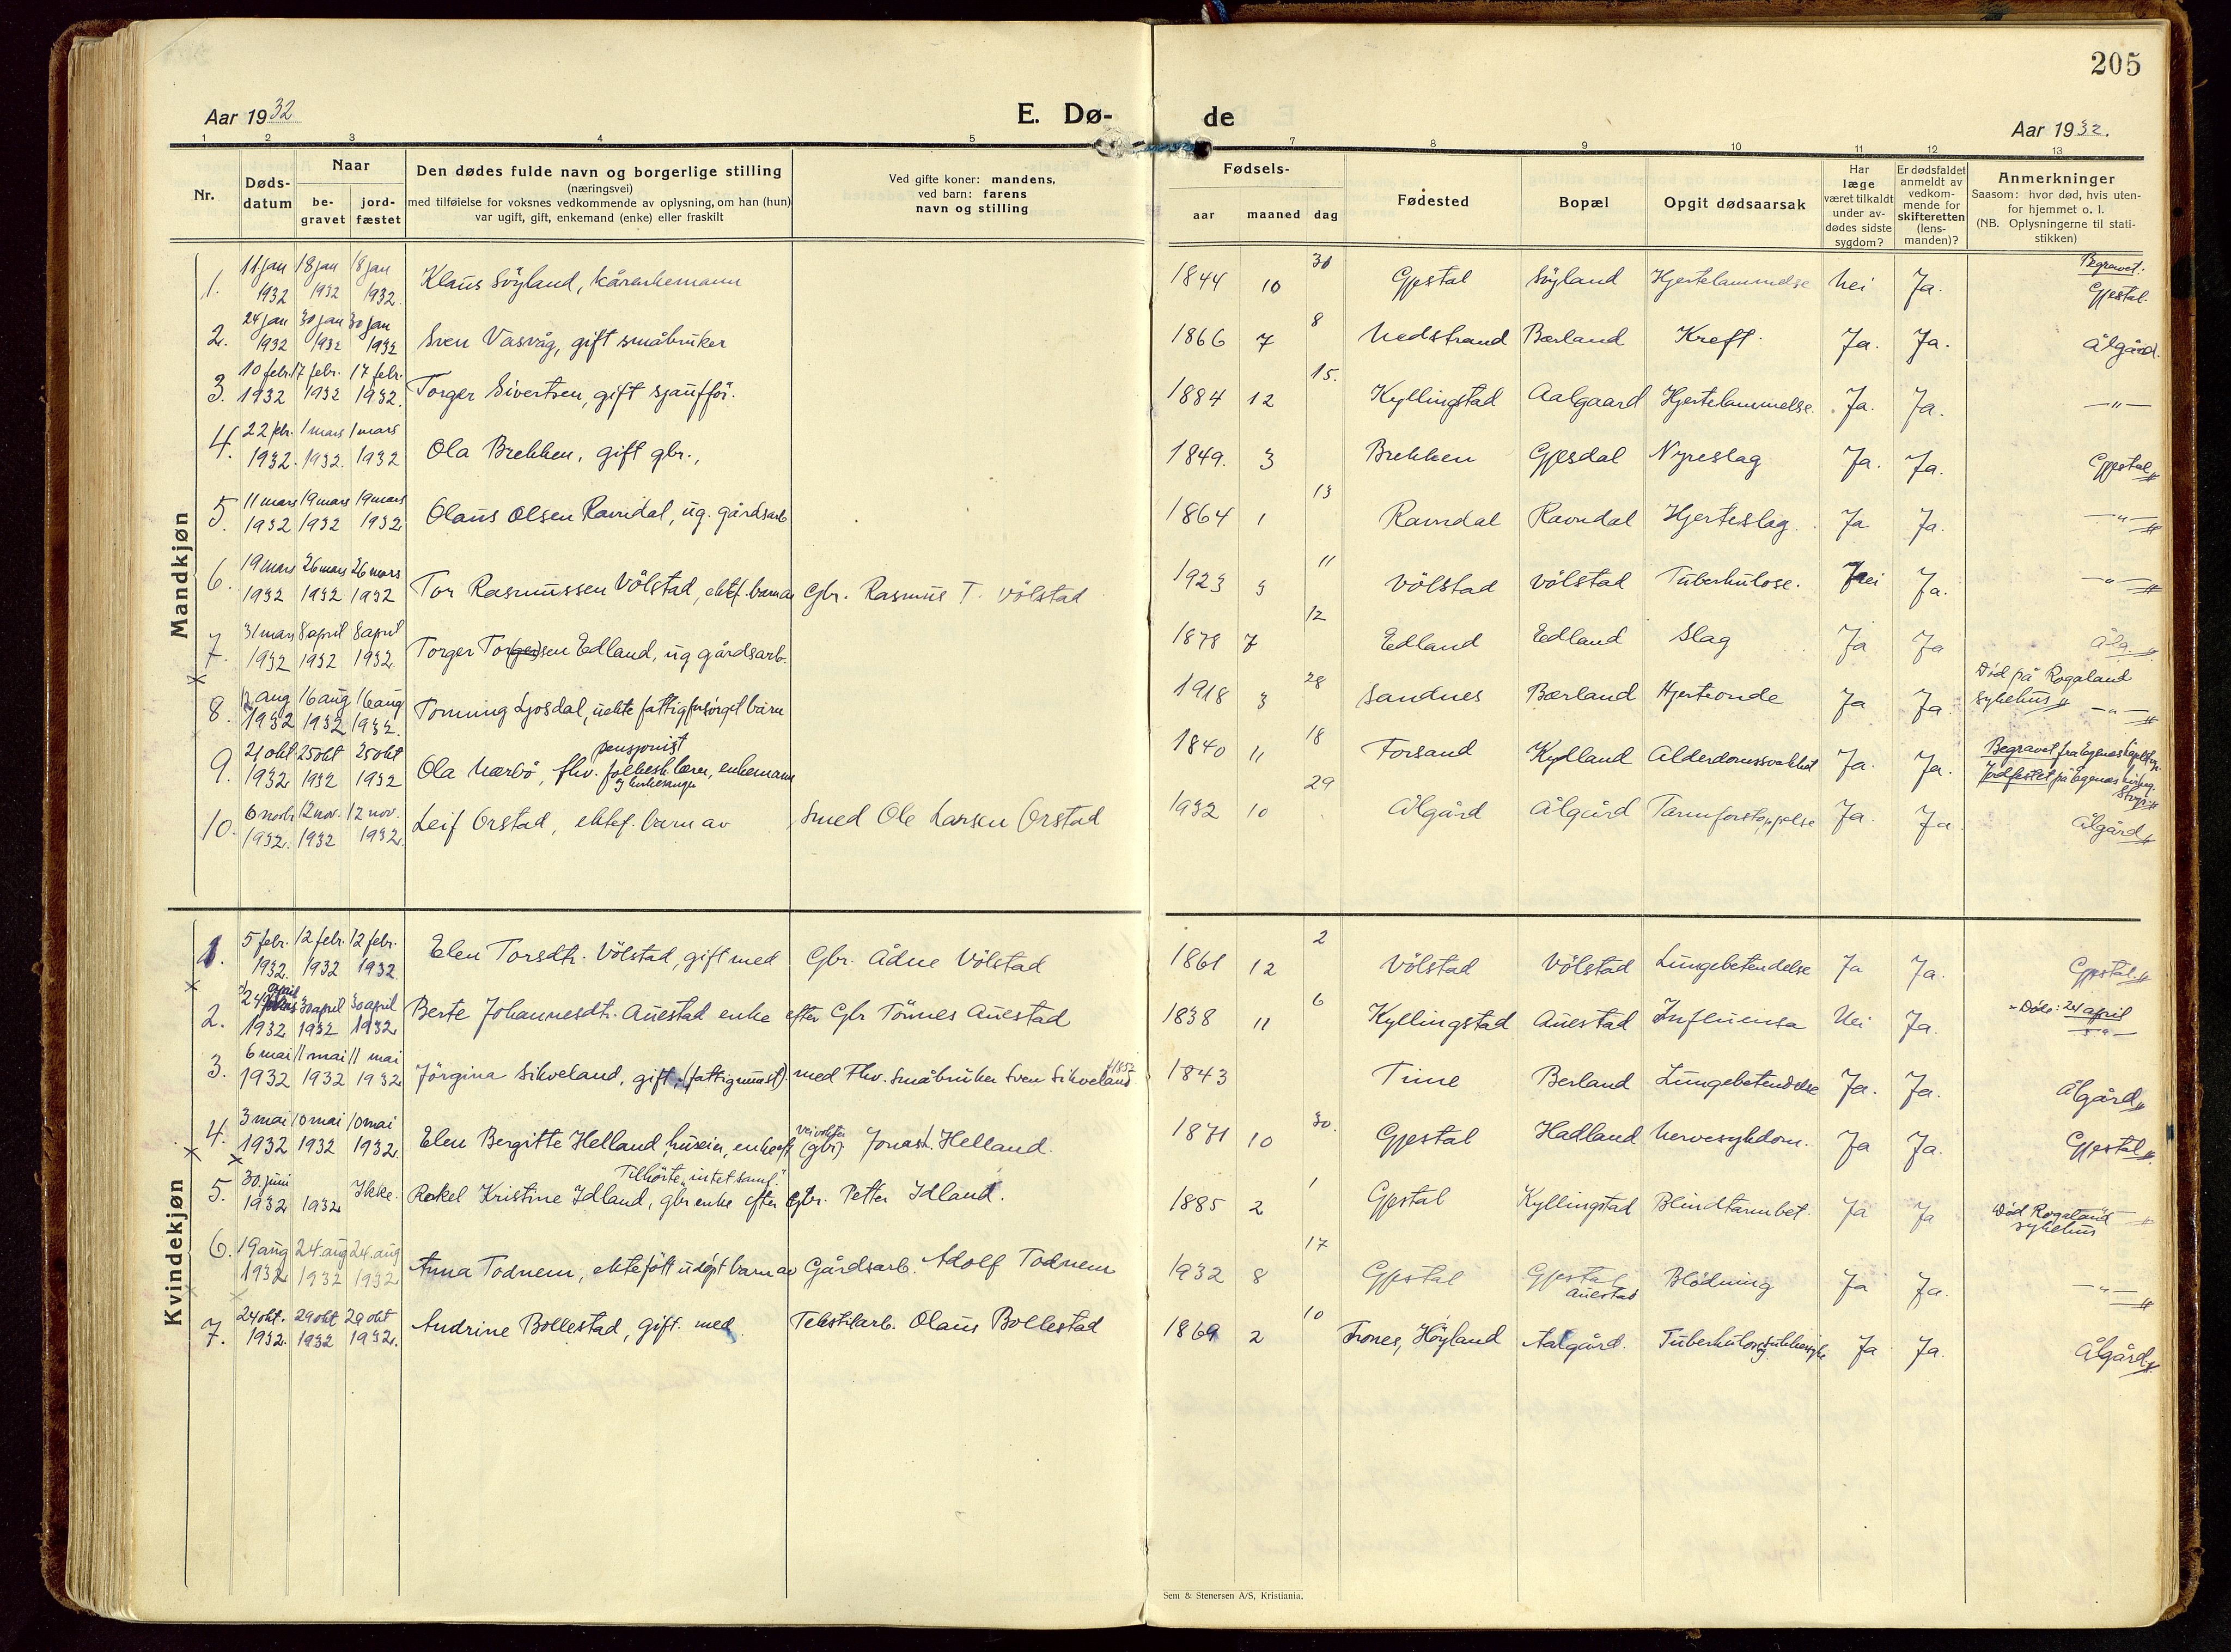 205
Aar 1932
E. Dø-
de
Aar 1932.
1 2 3 4 5 7 8 9 10 11 12 13
Nr.
Døds-
datum
Naar
be-
gravet
jord-
fæstet
Den dødes fulde navn og borgerlige stilling
(næringsvei)
med tilføielse for voksnes vedkommende av oplysning, om han (hun)
var ugift, gift, enkemand (enke) eller fraskilt
Ved gifte koner: mandens,
ved barn: farens
navn og stilling
Fødsels-
aar maaned dag
Fødested
Bopæl
Opgit dødsaarsak
Har
læge
været tilkaldt
under av-
dødes sidste
sygdom?
Er dødsfaldet
anmeldt av
vedkom-
mende for
skifteretten
(lens-
manden)?
Anmerkninger
Saasom: hvor død, hvis uten-
for hjemmet o. l.
(NB. Oplysningerne til stati-
stikken)
Mandkjøn
1. 11 jan 1932 18 jan 1932 18 jan 1932. Klaus Söyland, kårenkemann 1844 10 30 Gjestal Söyland Hjertelammelse Nei Ja. Begravet. Gjestal.
2. 24 jan 1932 30 jan 1932 30 jan 1932 Sven Vasvåg, gift småbruker 1866 7 8 Nedstrand Bærland Kreft. Ja. Ja. Ålgård.
3. 10 febr. 1932 17 febr. 1932 17 febr. 1932. Torger Sivertsen, gift sjaufför. 1884 12 15. Kyllingstad Aalgaard Hjertelammelse. Ja. Ja. —"—
4. 22 febr. 1932. 1 mars 1932. 1 mars 1932 Ola Brekken, gift gbr., 1849. 3 Brekken Gjesdal Nyreslag Ja. Ja. Gjestal
5. 11 mars 1932 19 mars 1932 19 mars 1932 Olaus Olsen Ravndal, ug. gårdsarb 1864 1 13 Ravndal Ravndal Hjerteslag. Ja Ja. —"—
6. 19 mars 1932 26 mars 1932 26 mars 1932 Tor Rasmussen Völstad, ektef. barn av Gbr. Rasmus T. Völstad 1923 3 11 Völstad Völstad Tuberkulose. Nei Ja. —"—
7. 31 mars 1932 8 april 1932 8 april 1932. Torger Tor(ger)sen Edland, ug gårdsarb. 1878 7 12 Edland Edland Slag Ja Ja Ålg.
8. 12 aug 1932 16 aug 1932 16 aug 1932. Tonning Lyosdal, uekte fattigforsörget barn 1918 3 28 Sandnes Bærland Hjerteonde Ja Ja. Död på Rogaland sykehus —"—
9. 21 okt. 1932 25 okt 1932 25 okt 1932 Ola Nærbö, fhv. folkesk. lærer, pensjonist enkemann og kirkesanger 1840 11 18 Forsand Kydland Alderdomssvakhet Ja. Ja. Begravet fra Egenes kapell Stvgr. Jordfestet på Egenes kirkeg. Stvgr.
10. 6 novbr 1932. 12 nov. 1932 12 nov. 1932. Leif Orstad, ektef. barn av Smed Ole Larsen Orstad 1932 10 29 Ålgård Ålgård Tarmforstoppelse Ja. Ja. Ålgård
Kvindekjøn
1. 5 febr. 1932. 12 febr. 1932 12 febr. 1932 Elen Torsdtr. Völstad, gift med Gbr. Ådne Völstad 1861 12 2 Völstad Völstad Lungebetendelse Ja Ja. Gjestal
2. 24 april 1932 30 april 1932 30 april 1932 Berte Johannesdtr. Auestad enke efter Gbr Tönnes Auestad 1838 11 6 Kyllingstad Auestad Influensa Nei Ja. Döde: 24 april —"—
3. 6 mai 1932 11 mai 1932 11 mai 1932 Jörgina Sikveland, gift, (fattigunnst). med Fhv. småbruker Sven Sikveland f. 1857 1843 Time Berland Lungebetendelse Ja. Ja. Ålgård
4. 3 mai 1932 10 mai 1932 10 mai 1932. Elen Bergitte Helland, huseier, enke eft veivokter (gbr) Jonas L. Helland. 1871 10 30. Gjestal Hadland Nervesykdom. Ja Ja. Gjestal
5. 30. juni 1932 1932 Ikke. Rakel Kristine Idland, gbr enke efter Tilhörte „intet samf." Gbr. Petter Idland. 1885 2 1 Gjestal Kyllingstad Blindtarmbet. Ja Ja Död Rogaland sykehus —"—
6. 19 aug 1932 24. aug 1932 24. aug 1932 Anna Todnem, ektefött udöpt barn av Gårdsarb. Adolf Todnem 1932 8 17 Gjestal Gjestal Auestad Blödning Ja Ja. —"—
7. 24 okt. 1932. 29 okt 1932 29 okt 1932. Andrine Bollestad, gift. med Tekstilarb. Olaus Bollestad 1869 2 10 Frones, Höyland Aalgård. Tuberkulose og sukkersyke Ja Ja. Ålgård
Sem & Stenersen A/S, Kristiania.